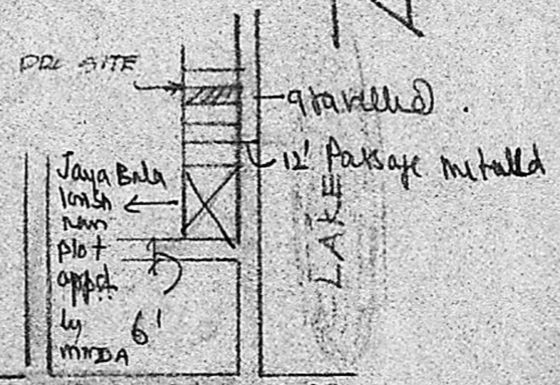 PPL SITE
gravelled.
12' Passage metalled
Jaya Bala
plot
appd.
by
MMDA
6'
LAKE